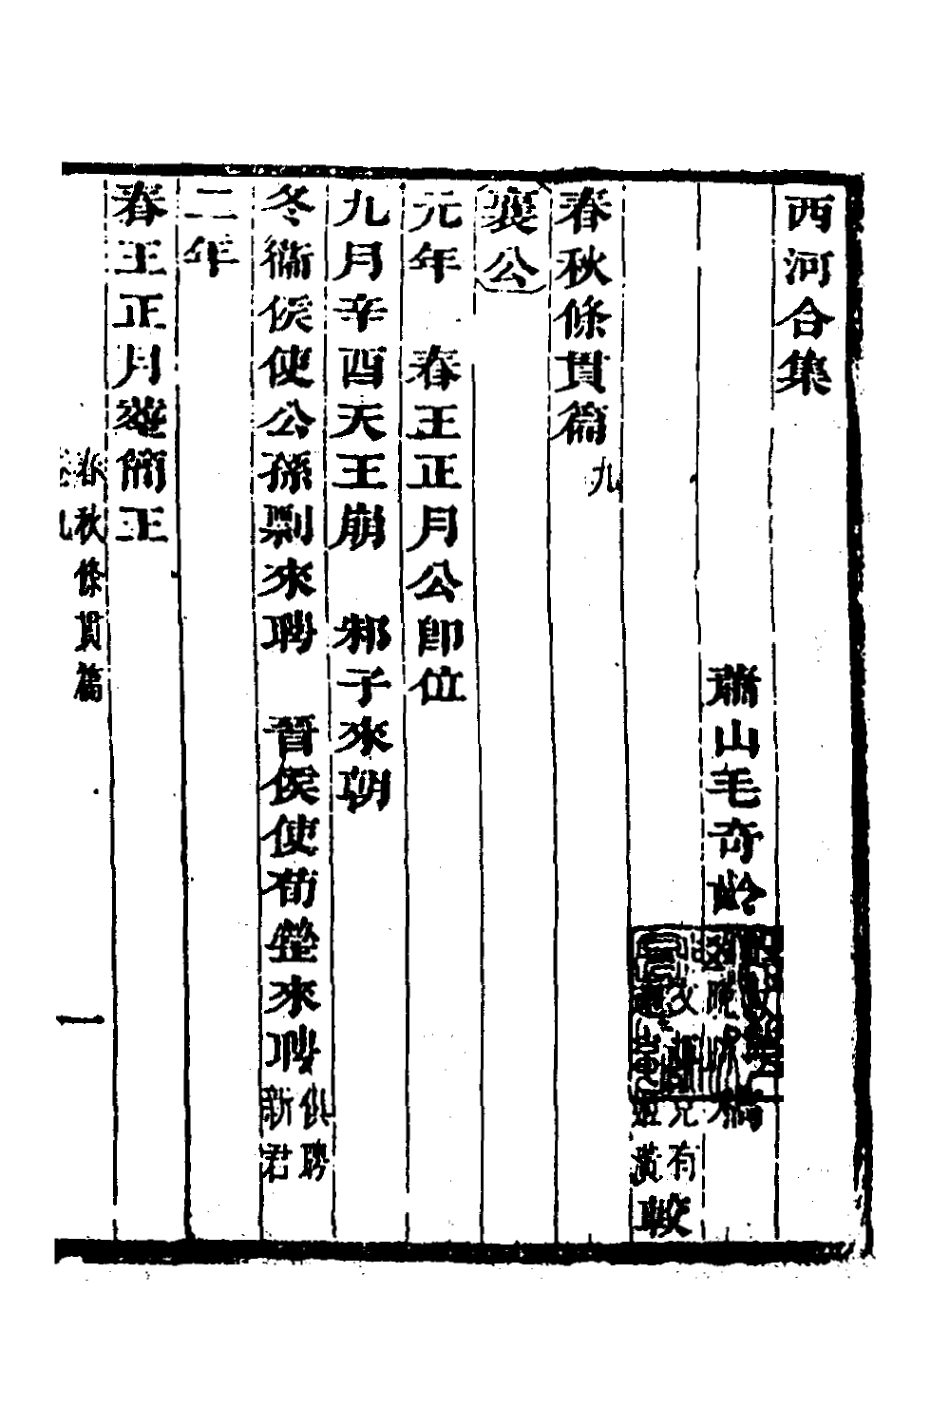 西河合集
蕭山毛奇齡 稿
兄有
黃
較
春秋條貫篇 九
襄公
元年 春王正月公卽位
九月辛酉天王崩 邾子來朝
冬衞侯使公孫剽來聘 晉侯使荀罃來聘 俱聘
新君
二年
春王正月葬簡王
春秋條貫篇
卷九
一